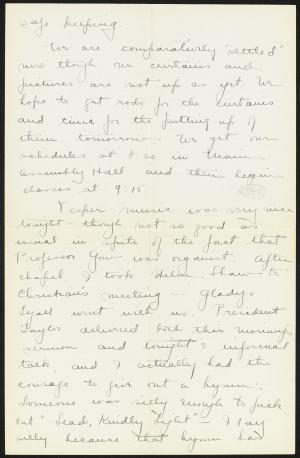 safe keeping.
We are comparatively "settled"
now though our curtains and
pictures are not up as yet. We
hope to get rods for the curtains
and time for the putting up of
them tomorrow. We get our
schedules at 8:30 in Main
Assembly Hall and then begin
classes at 9:15
Vesper music was very nice
tonight - though not so good as
usual in spite of the fact that
Professor Gow was organist. After
chapel, I took Helen Shaw to
Christian's meeting - Gladys
Lyall went with us. President
Taylor delivered both this morning's
sermon and tonight's informal
talk and I actually had the
courage to give out a hymn.
Someone was silly enough to pick
out "Lead, Kindly Light" - I say
silly because that hymn had